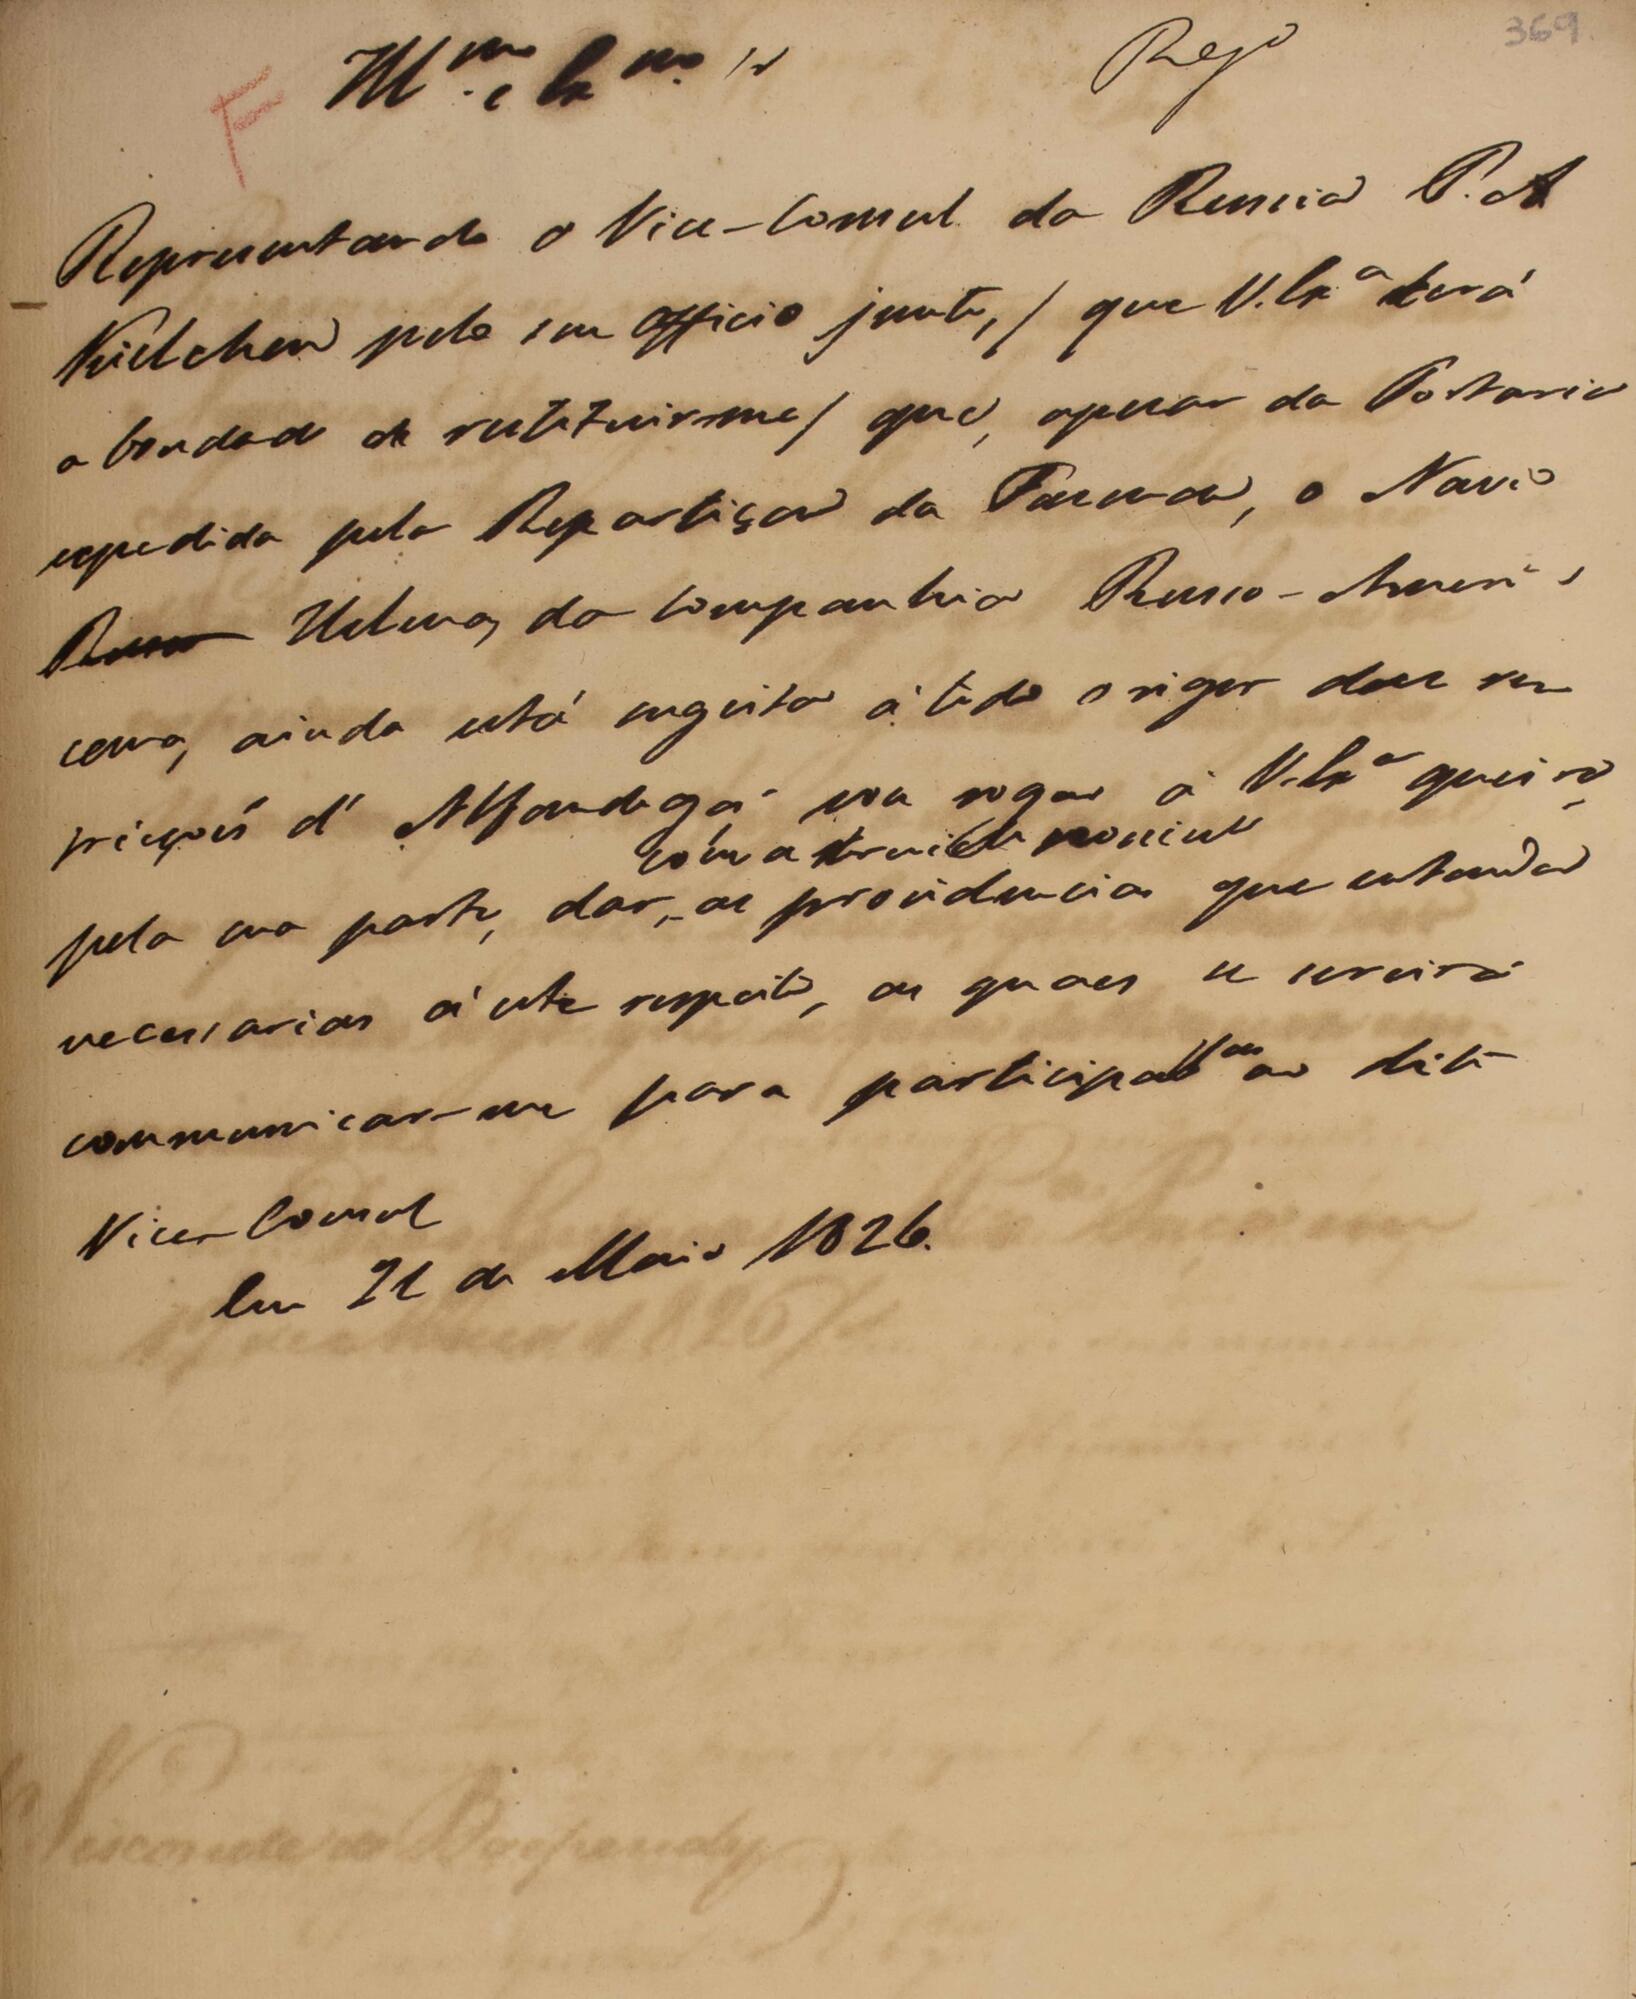 369
Regº
F
Illmo. e Exmo. Sr
Representando o Vice-Consul da Russia P. A
Kielchen pelo seu officio junto, / que V. Exª terá
a bondade de restituirme / que, apesar da Portaria
expedida pela Repartiçaõ da Fazenda, o Navio
Russo Helena, da Companhia Russo-Ameri-
cana, ainda está sugeito á todo o rigor das res
tricçoẽs d'Alfandega vou rogar á V. Exª queira,
com a brevidade possivel
pela sua parte, dar, as providencias que entender
necessarias á este respeito, as quaes se servirá
communicar-me para participal-as ao dito
Vice-Consul
Em 21 de Maio 1826.
Visconde de Baependy